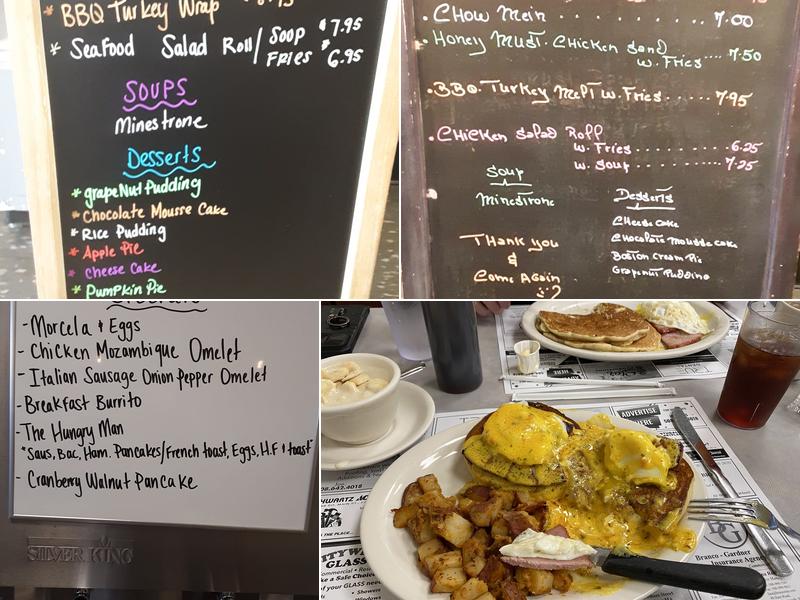 * BBQ Turkey Wrap
* Seafood Salad Roll/ Soup $7.95
Fries $6.95
SOUPS
Minestrone
Desserts
* grapeNut Pudding
* Chocolate Mousse Cake
* Rice Pudding
* Apple Pie
* Cheese Cake
* Pumpkin Pie
. Chow Mein . . . . . . . . . . 7.00
. Honey Must. Chicken Sand
w. Fries . . . . . 7.50
. BBQ. Turkey Melt w. Fries . . . . . 7.95
. Chicken Salad Roll
w. Fries . . . . . . . . . 6.25
w. Soup . . . . . . . . . 7.25
Soup
Minestrone
Thank you
&
Come Again
Desserts
Cheese cake
Chocolate Mousse cake
Boston Cream Pie
Grapenut Pudding
- Morcela & Eggs
- Chicken Mozambique Omelet
- Italian Sausage Onion Pepper Omelet
- Breakfast Burrito
- The Hungry Man
*Saus, Bac, Ham. Pancakes/French toast, Eggs, H.F & toast*
- Cranberry Walnut Pancake
SILVER KING
ADVERTISE
HERE
Branco - Gardner
Insurance Agency
GLASS